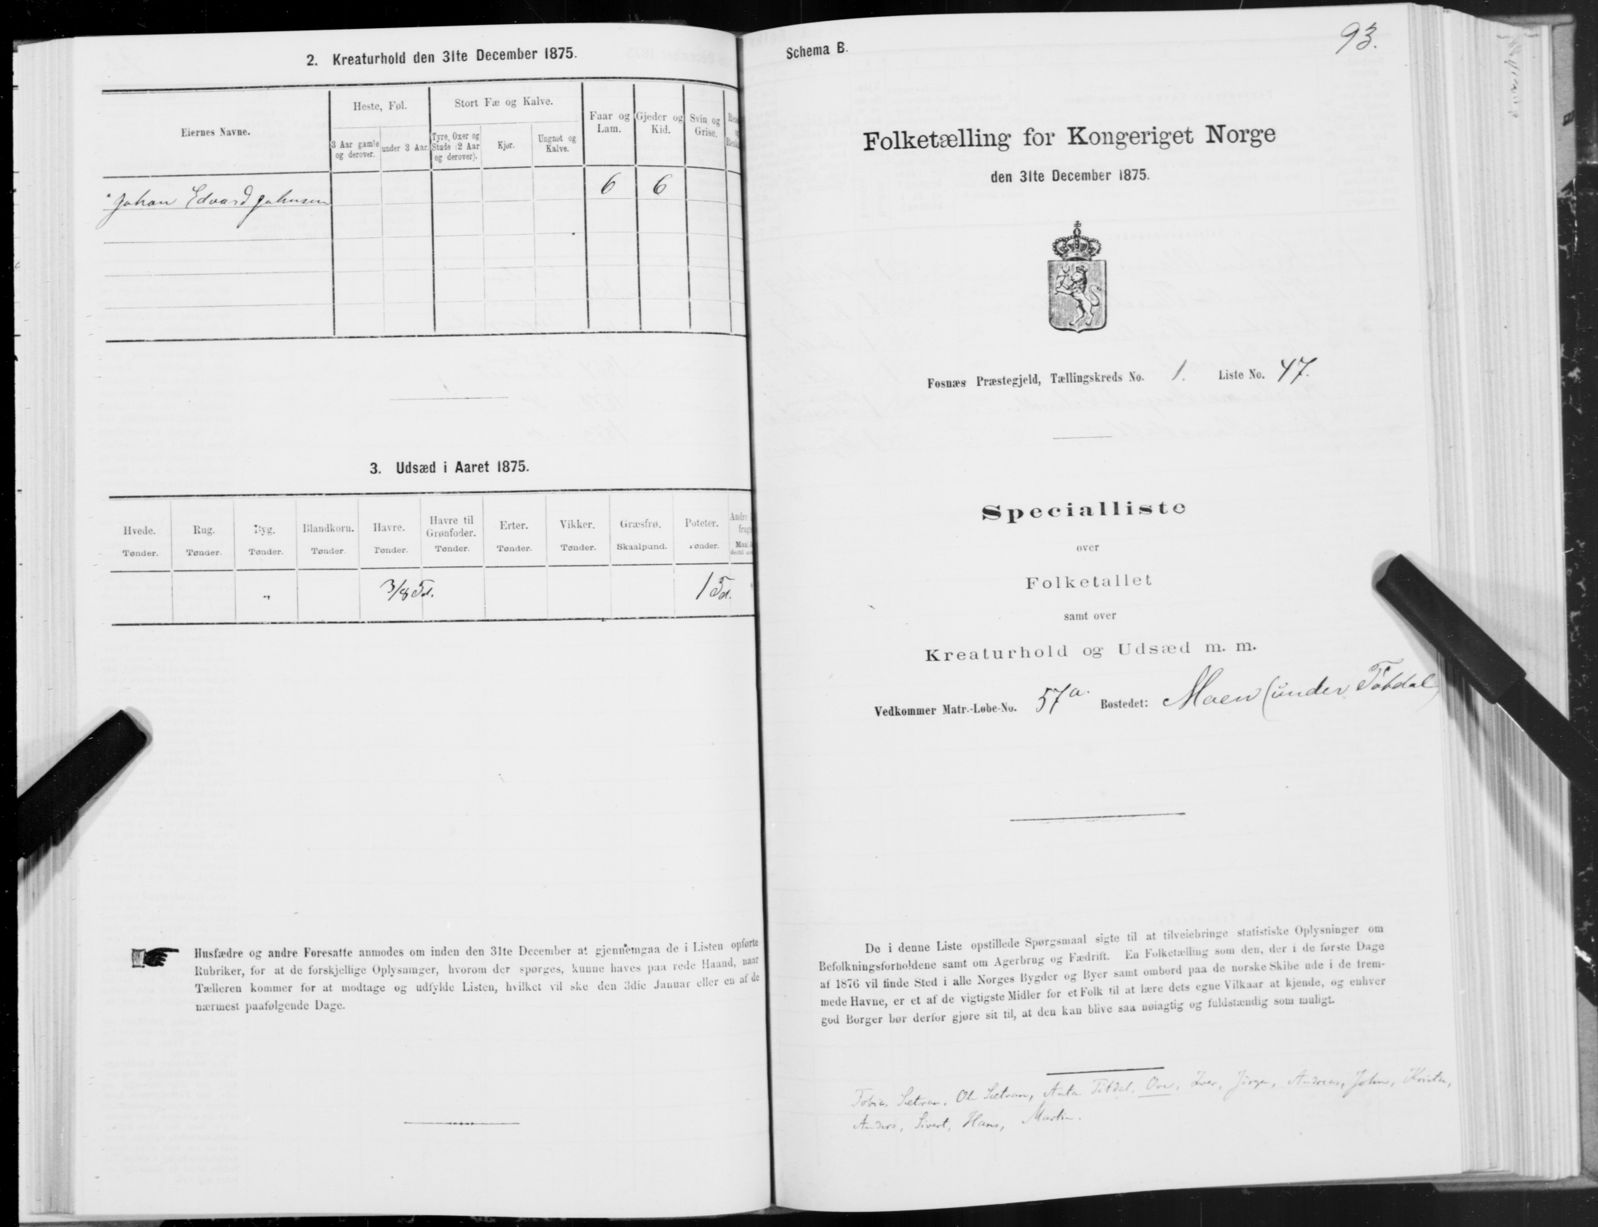 2. Kreaturhold den 31te December 1875.
Eiernes Navne.
Heste, Føl.
Stort Fæ og Kalve.
Faar og Lam.
Gjeder og Kid.
Svin og Grise.
3 Aar gamle og derover.
under 3 Aar.
Tyre, Oxer og Stude (2 Aar og derover).
Kjør.
Ungnøt og Kalve.
Johan Edvard Johnsen 6 6
3. Udsæd i Aaret 1875.
Hvede. Rug. Byg. Blandkorn. Havre. Havre til Grønfoder. Erter. Vikker. Græsfrø. Poteter.
Tønder. Tønder. Tønder. Tønder. Tønder. Tønder. Tønder. Tønder. Skaalpund. Tønder.
" 3/8 Td. 1 Td.
Husfædre og andre Foresatte anmodes om inden den 31te December at gjennemgaa de i Listen opførte
Rubriker, for at de forskjellige Oplysninger, hvorom der spørges, kunne haves paa rede Haand, naar
Tælleren kommer for at modtage og udfylde Listen, hvilket vil ske den 3die Januar eller en af de
nærmest paafølgende Dage.
Schema B.
93.
Folketælling for Kongeriget Norge
den 31te December 1875.
Fosnæs Præstegjeld, Tællingskreds No. 1. Liste No. 47.
Specialliste
over
Folketallet
samt over
Kreaturhold og Udsæd m. m.
Vedkommer Matr.-Løbe-No. 57a. Bostedet: Moen (under
De i denne Liste opstillede Spørgsmaal sigte til at tilveiebringe statistiske Oplysninger om
Befolkningsforholdene samt om Agerbrug og Fædrift. En Folketælling som den, der i de første Dage
af 1876 vil finde Sted i alle Norges Bygder og Byer samt ombord paa de norske Skibe ude i de frem-
mede Havne, er et af de vigtigste Midler for et Folk til at lære dets egne Vilkaar at kjende, og enhver
god Borger bør derfor gjøre sit til, at den kan blive saa nøiagtig og fuldstændig som muligt.
Tobias Sætran, Ol Sætran, Anta Titdal, Ove, Iver, Jörgen, Andreas, John, Krister,
Anders, Sivert, Hans, Martin.